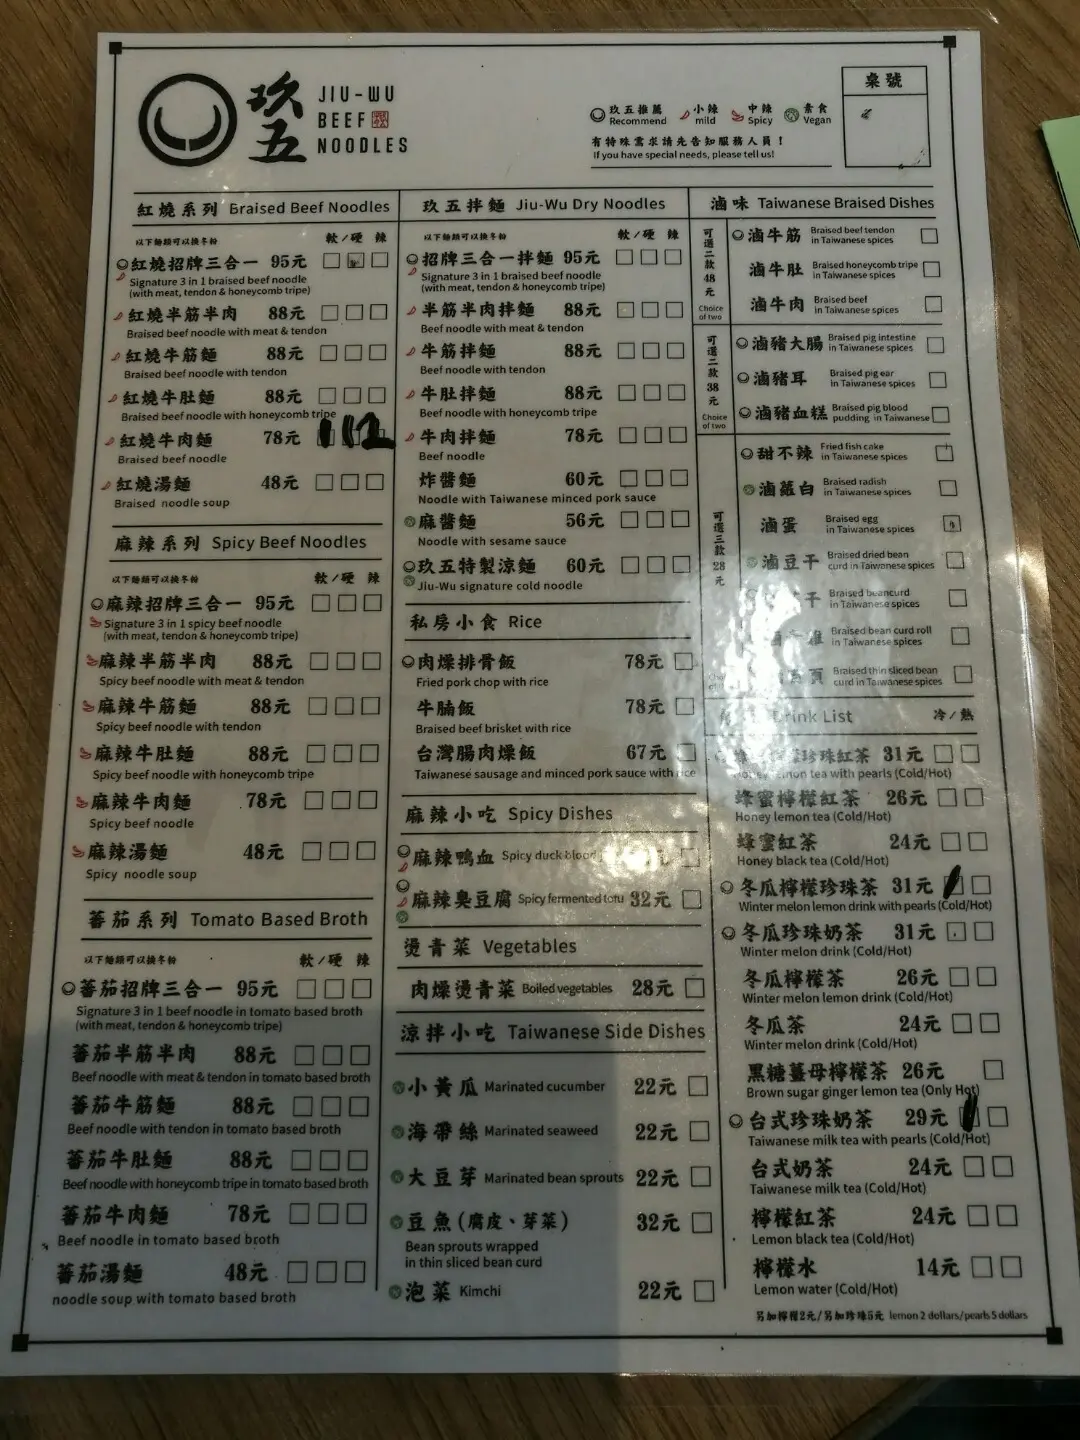 玖五
JIU-WU
BEEF
NOODLES
玖五推薦 Recommend
小辣 mild
中辣 Spicy
素食 Vegan
有特殊需求請先告知服務人員！
If you have special needs, please tell us!
桌號
紅燒系列 Braised Beef Noodles
以下麵類可以換冬粉 軟/硬 辣
紅燒招牌三合一 95元
Signature 3 in 1 braised beef noodle
(with meat, tendon & honeycomb tripe)
紅燒半筋半肉 88元
Braised beef noodle with meat & tendon
紅燒牛筋麵 88元
Braised beef noodle with tendon
紅燒牛肚麵 88元
Braised beef noodle with honeycomb tripe
紅燒牛肉麵 78元
Braised beef noodle
紅燒湯麵 48元
Braised noodle soup
麻辣系列 Spicy Beef Noodles
以下麵類可以換冬粉 軟/硬 辣
麻辣招牌三合一 95元
Signature 3 in 1 spicy beef noodle
(with meat, tendon & honeycomb tripe)
麻辣半筋半肉 88元
Spicy beef noodle with meat & tendon
麻辣牛筋麵 88元
Spicy beef noodle with tendon
麻辣牛肚麵 88元
Spicy beef noodle with honeycomb tripe
麻辣牛肉麵 78元
Spicy beef noodle
麻辣湯麵 48元
Spicy noodle soup
蕃茄系列 Tomato Based Broth
以下麵類可以換冬粉 軟/硬 辣
蕃茄招牌三合一 95元
Signature 3 in 1 beef noodle in tomato based broth
(with meat, tendon & honeycomb tripe)
蕃茄半筋半肉 88元
Beef noodle with meat & tendon in tomato based broth
蕃茄牛筋麵 88元
Beef noodle with tendon in tomato based broth
蕃茄牛肚麵 88元
Beef noodle with honeycomb tripe in tomato based broth
蕃茄牛肉麵 78元
Beef noodle in tomato based broth
蕃茄湯麵 48元
noodle soup with tomato based broth
玖五拌麵 Jiu-Wu Dry Noodles
以下麵類可以換冬粉 軟/硬 辣
招牌三合一拌麵 95元
Signature 3 in 1 braised beef noodle
(with meat, tendon & honeycomb tripe)
半筋半肉拌麵 88元
Beef noodle with meat & tendon
牛筋拌麵 88元
Beef noodle with tendon
牛肚拌麵 88元
Beef noodle with honeycomb tripe
牛肉拌麵 78元
Beef noodle
炸醬麵 60元
Noodle with Taiwanese minced pork sauce
麻醬麵 56元
Noodle with sesame sauce
玖五特製涼麵 60元
Jiu-Wu signature cold noodle
私房小食 Rice
肉燥排骨飯 78元
Fried pork chop with rice
牛腩飯 78元
Braised beef brisket with rice
台灣腸肉燥飯 67元
Taiwanese sausage and minced pork sauce with rice
麻辣小吃 Spicy Dishes
麻辣鴨血 Spicy duck blood
麻辣臭豆腐 Spicy fermented tofu 32元
燙青菜 Vegetables
肉燥燙青菜 Boiled vegetables 28元
涼拌小吃 Taiwanese Side Dishes
小黃瓜 Marinated cucumber 22元
海帶絲 Marinated seaweed 22元
大豆芽 Marinated bean sprouts 22元
豆魚(腐皮、芽菜) 32元
Bean sprouts wrapped
in thin sliced bean curd
泡菜 Kimchi 22元
滷味 Taiwanese Braised Dishes
可選二款48元
Choice of two
滷牛筋 Braised beef tendon in Taiwanese spices
滷牛肚 Braised honeycomb tripe in Taiwanese spices
滷牛肉 Braised beef in Taiwanese spices
可選二款38元
Choice of two
滷豬大腸 Braised pig intestine in Taiwanese spices
滷豬耳 Braised pig ear in Taiwanese spices
滷豬血糕 Braised pig blood pudding in Taiwanese
可選三款28元
甜不辣 Fried fish cake in Taiwanese spices
滷蘿白 Braised radish in Taiwanese spices
滷蛋 Braised egg in Taiwanese spices
滷豆干 Braised dried bean curd in Taiwanese spices
干 Braised beancurd in Taiwanese spices
Braised bean curd roll in Taiwanese spices
頁 Braised thin sliced bean curd in Taiwanese spices
Drink List 冷/熱
珍珠紅茶 31元
Honey lemon tea with pearls (Cold/Hot)
蜂蜜檸檬紅茶 26元
Honey lemon tea (Cold/Hot)
蜂蜜紅茶 24元
Honey black tea (Cold/Hot)
冬瓜檸檬珍珠茶 31元
Winter melon lemon drink with pearls (Cold/Hot)
冬瓜珍珠奶茶 31元
Winter melon drink (Cold/Hot)
冬瓜檸檬茶 26元
Winter melon lemon drink (Cold/Hot)
冬瓜茶 24元
Winter melon drink (Cold/Hot)
黑糖薑母檸檬茶 26元
Brown sugar ginger lemon tea (Only Hot)
台式珍珠奶茶 29元
Taiwanese milk tea with pearls (Cold/Hot)
台式奶茶 24元
Taiwanese milk tea (Cold/Hot)
檸檬紅茶 24元
Lemon black tea (Cold/Hot)
檸檬水 14元
Lemon water (Cold/Hot)
另加檸檬2元/另加珍珠5元 lemon 2 dollars/pearls 5 dollars